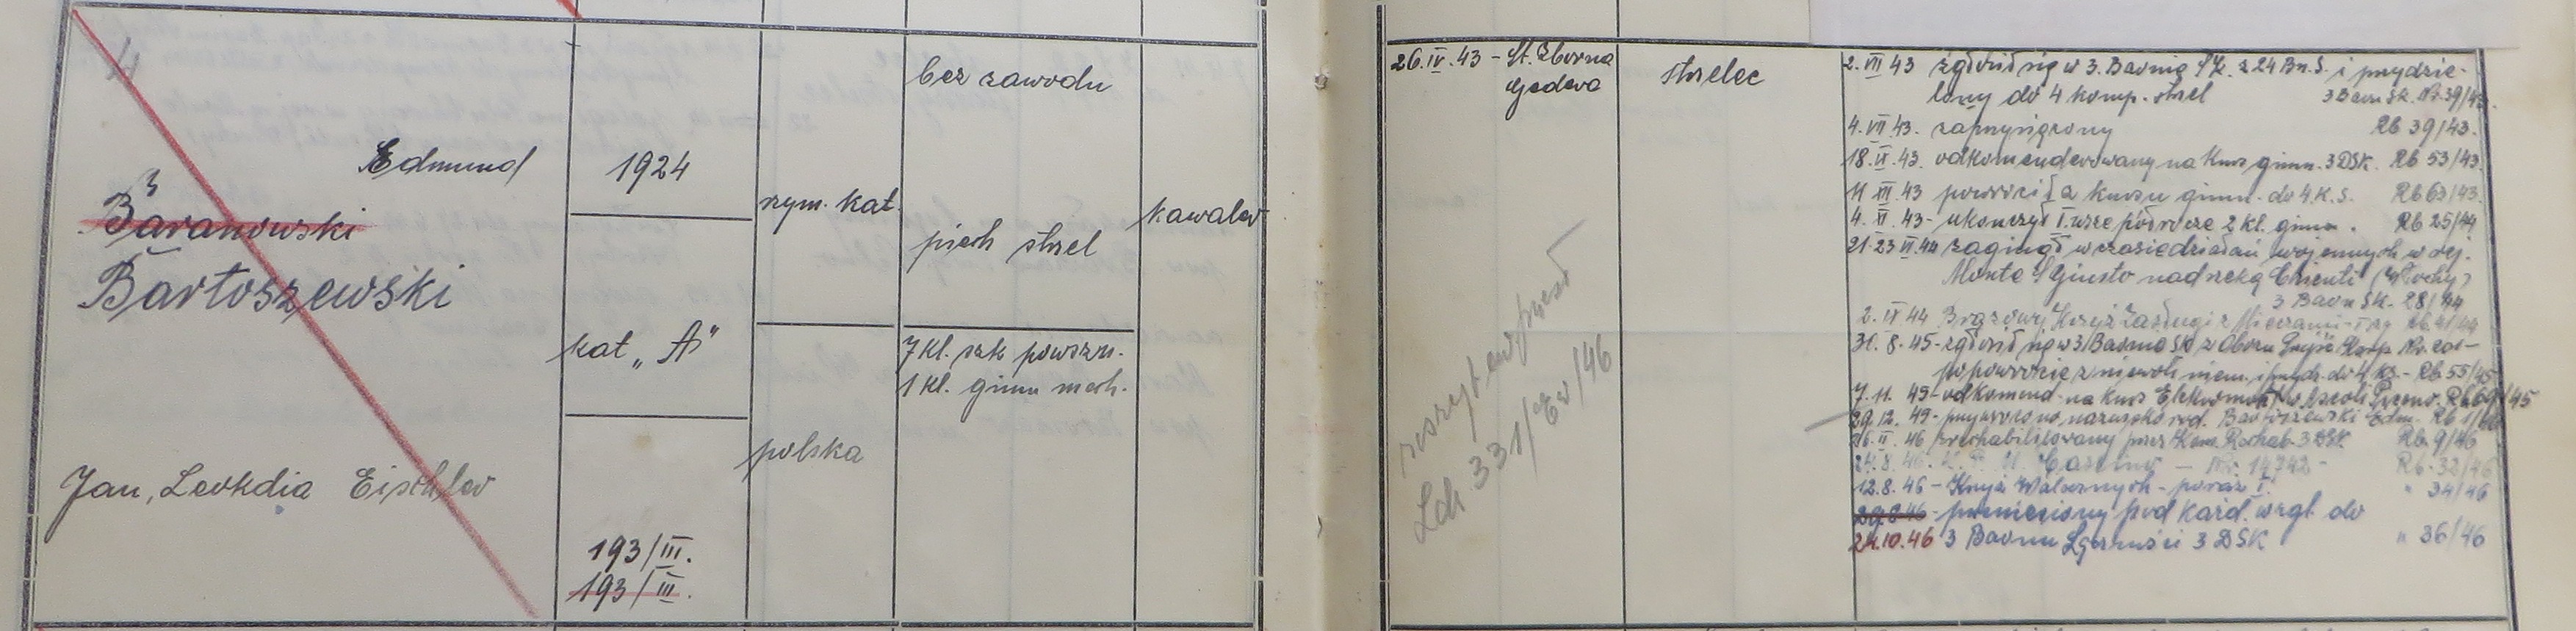 4
Edmund
3
Baranowski
Bartoszewski
Jan, Leokdia Eischler
1924
kat „A"
193/III.
193/III.
rzym. kat.
polska
bez zawodu
piech strzel
7 kl. szk powszn.
1 kl. gimn mech.
kawaler
26.IV.43 - St. Zborna
Gedera
strzelec
zeszyt ewp
Ldz. 331/Ew/46
2.VII 43 zgłosił się w 3. Baonie SK. z 24 Bn.S. i przydzie-
lony do 4 komp. strzel 3 Baon SK. Nr. 39/43.
4.VII 43. zaprzysiężony Rb 39/43.
18.IX.43. odkomenderowany na kurs gimn. 3 DSK. Rb 53/43.
11 XII 43 powrócił z kursu gimn. do 4 K.S. Rb 63/43.
4.XI.43 - ukończył I.wsze półrocze 2 kl. gimn. Rb 25/44
21-23 VI.44 zaginął w czasie działań wojennych w rej.
Monte S. Giusto nad rzeką Chienti (Włochy)
3 Baon SK. 28/44
2.IX 44 Brązowy Krzyż Zasługi z Mieczami - I rz Rb. 41/44
31.8.45 - zgłosił się w 3 Baonie SK z Obozu
po powrocie z niewoli niem. i przydz. do 4 ks - Rb 55/45
7.11.45 - odkomend. na kurs w Rb 69/45
29.12.45 - przywrócono nazwisko rod. Bartoszewski Edm. Rb 1/46
26.II.46 zrehabilitowany przez Kom. Rehab. 3 DSK Rb. 9/46
24.8.46. K. P. M. Cassino - Nr. 14742 - Rb. 32/46
12.8.46 - Krzyż Walecznych - po raz I. " 34/46
- przeniesiony pod każd. wzgl. do
24.10.46 3 Baonu Łączności 3 DSK " 36/46